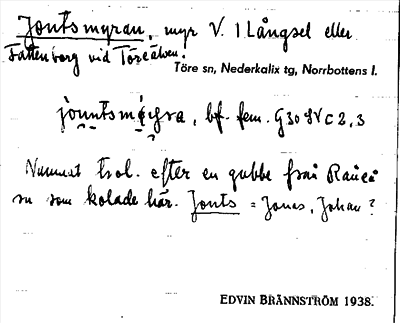 Jontsmyran, myr V. 1 Långsel eller
Fattenborg vid Töreälven.
Töre sn, Nederkalix tg, Norrbottens l.
bf. fem. G30 SV C 2, 3
Namnet trol. efter en gubbe från Råneå
sn som kolade här. Jonts = Jonas, Johan?
EDVIN BRÄNNSTRÖM 1938.